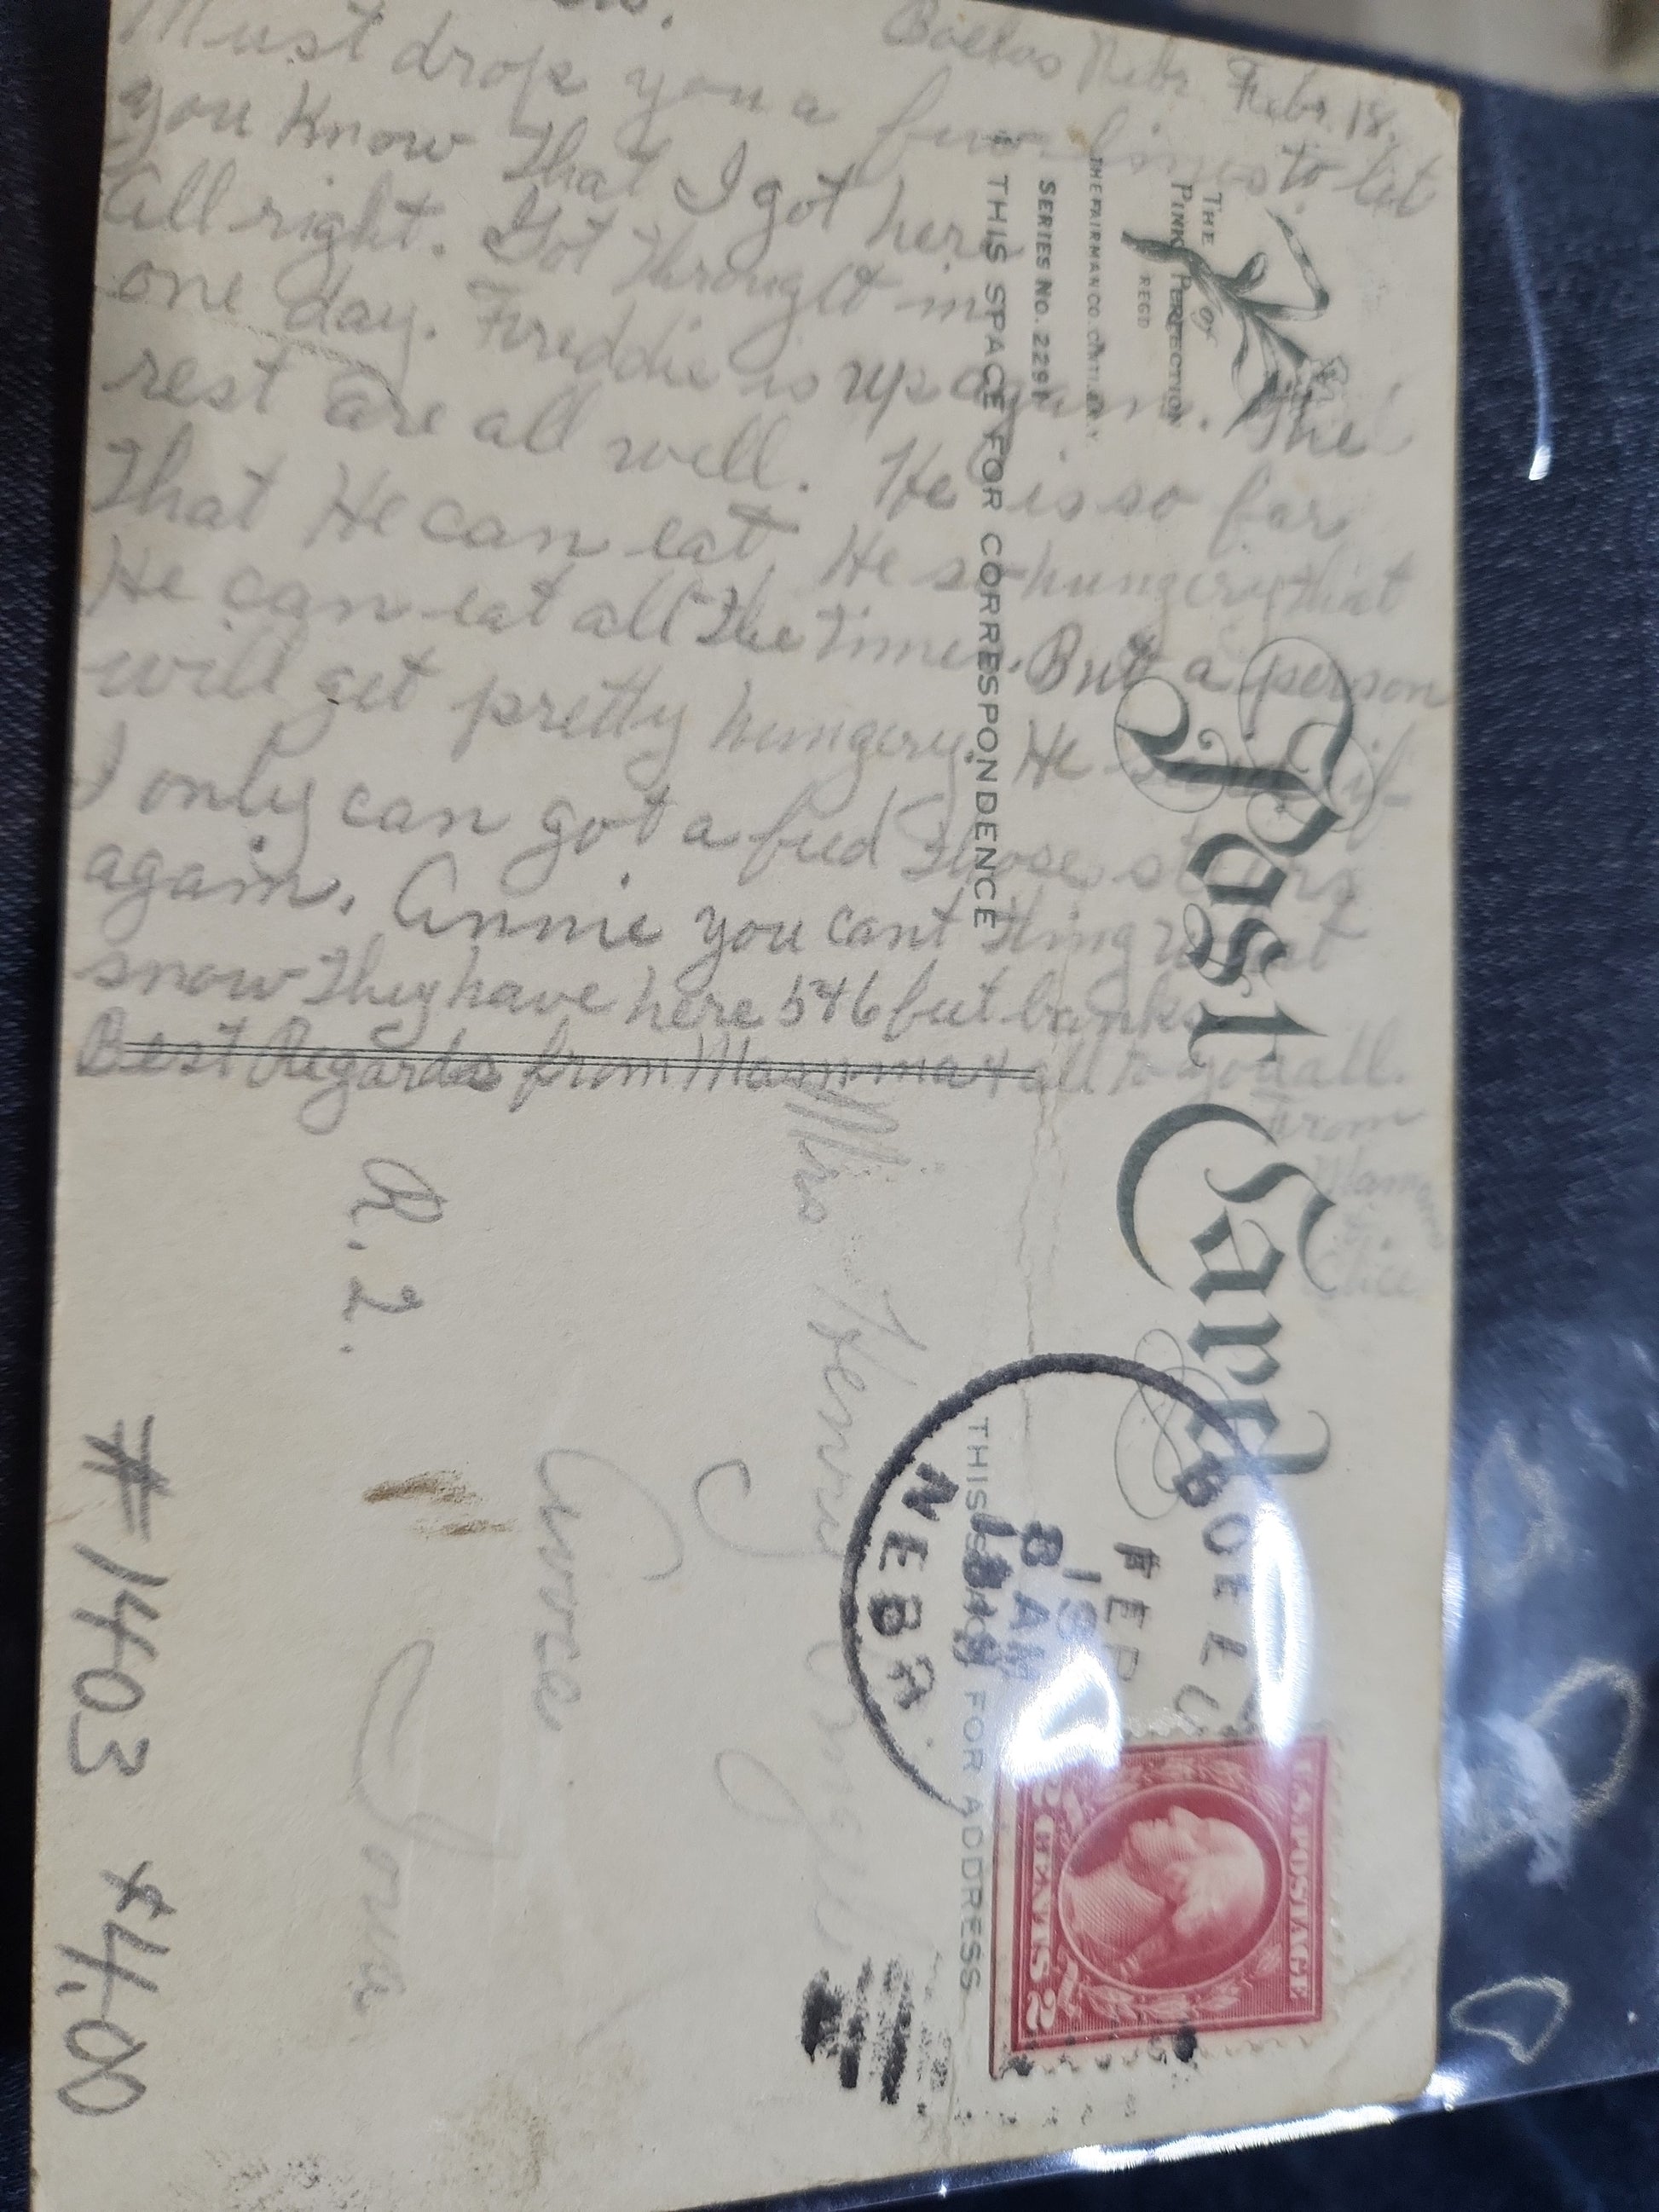 Boelus Nebr. Febr. 18.
Must drop you a few lines to let
you know That I got here
all right. Got Throught in
one day. Freddie is up again. The
rest are all well. He is so far
That He can eat. He so hungery that
He can eat all The time. But a person
will get pretty hungery. He says if
I only can got a feed Those
again. Annie you cant thing what
snow They have here 5 4 6 fut banks
Best Regards from Mamma & all to you all.
From
Mamma
Post Card
THE
PINK of PERFECTION
REGD
THE FAIRMAN CO. CINTI. & N.Y.
SERIES NO. 229
THIS SPACE FOR CORRESPONDENCE
THIS SPACE FOR ADDRESS
BOEL
FEB
19
8 AM
NEBR.
U.S. POSTAGE
2 CENTS 2
Mrs Henry
Avoca
Iowa
R. 2.
#1403 $4.00